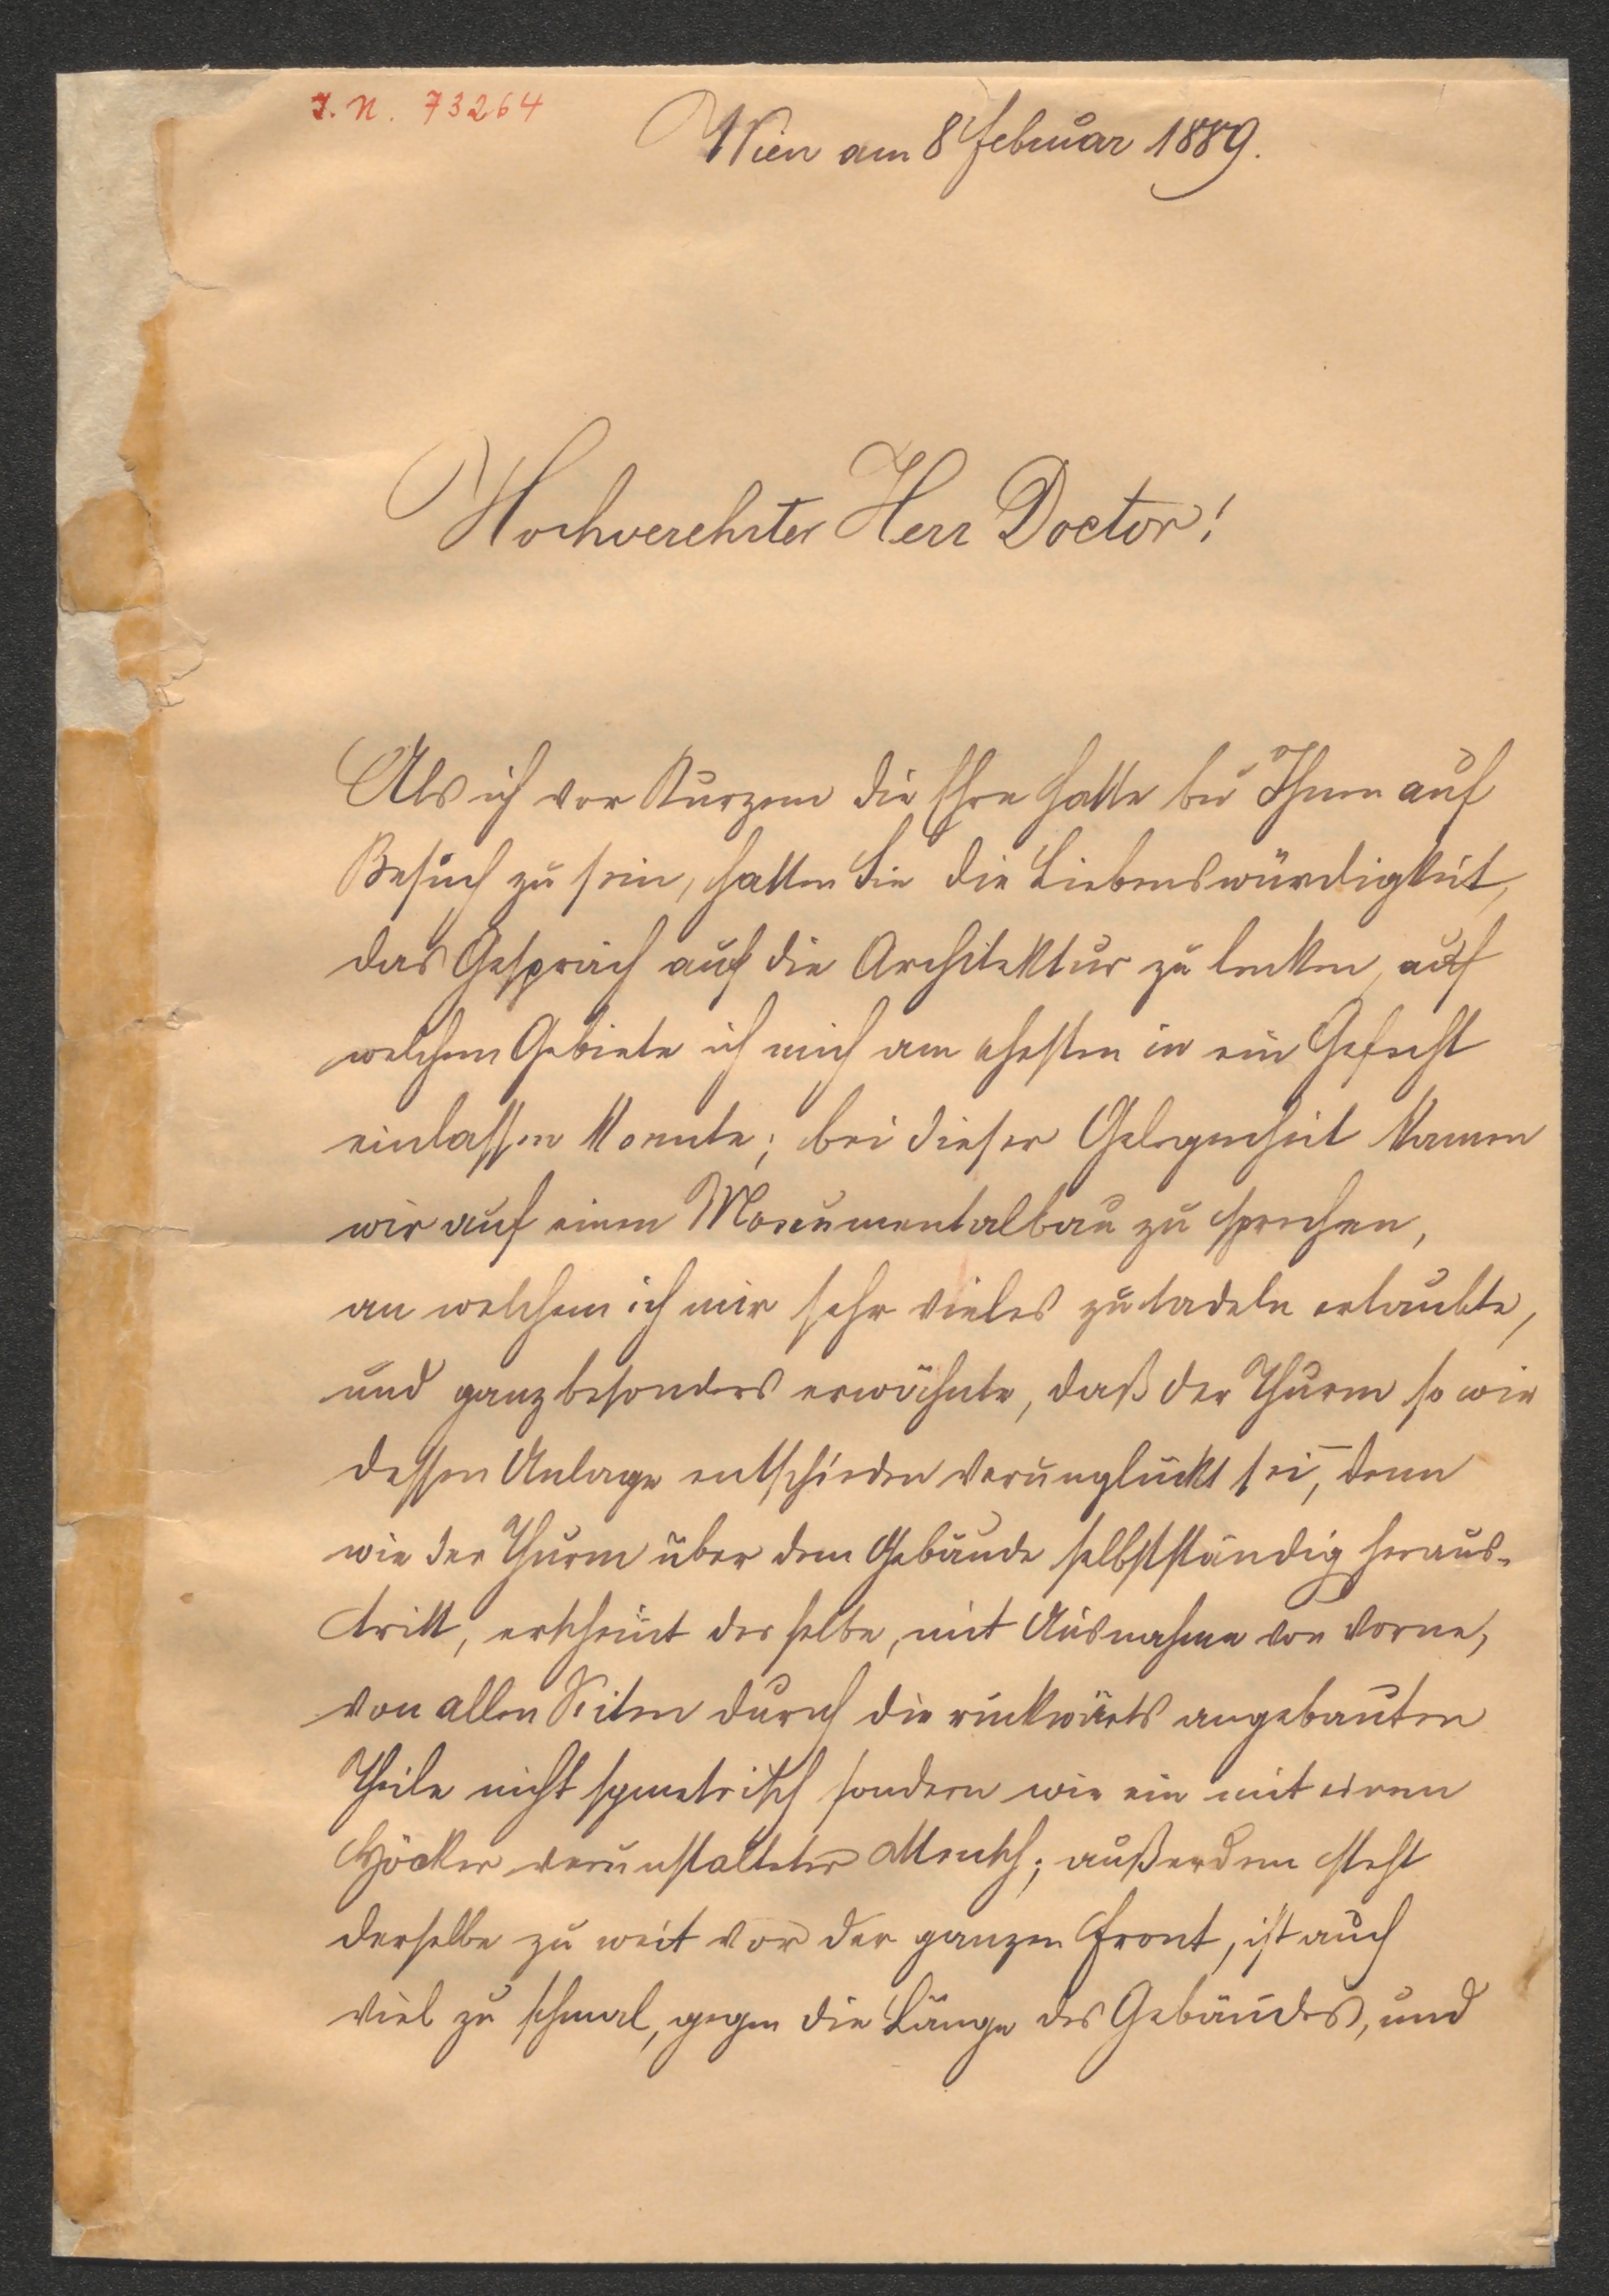 I. N. 73264
Wien am 8 Februar 1889.
Hochverehrter Herr Doctor!
Als ich vor Kurzem die Ehre hatte bei Ihnen auf
Besuch zu sein, hatten Sie die Liebenswürdigkeit,
das Gespräch auf die Architektur zu lenken, auf
welchem Gebiete ich mich am ehesten in ein Gefecht
einlassen konnte; bei dieser Gelegenheit kamen
wir auf einen Monumentalbau zu sprechen,
an welchem ich mir sehr vieles zu tadeln erlaubte,
und ganz besonders erwähnte, daß der Thurm so wie
dessen Anlage entschieden verunglückt sei, – denn
wie der Thurm über dem Gebäude selbstständig heraus-
tritt, erscheint derselbe, mit Ausnahme von vorne,
von allen Seiten durch die rückwärts angebauten
Theile nicht symetrisch sondern wie ein mit einem
Höcker verunstalteter Mensch; außerdem steht
derselbe zu weit vor der ganzen Front, ist auch
viel zu schmal, gegen die Länge des Gebäudes, und